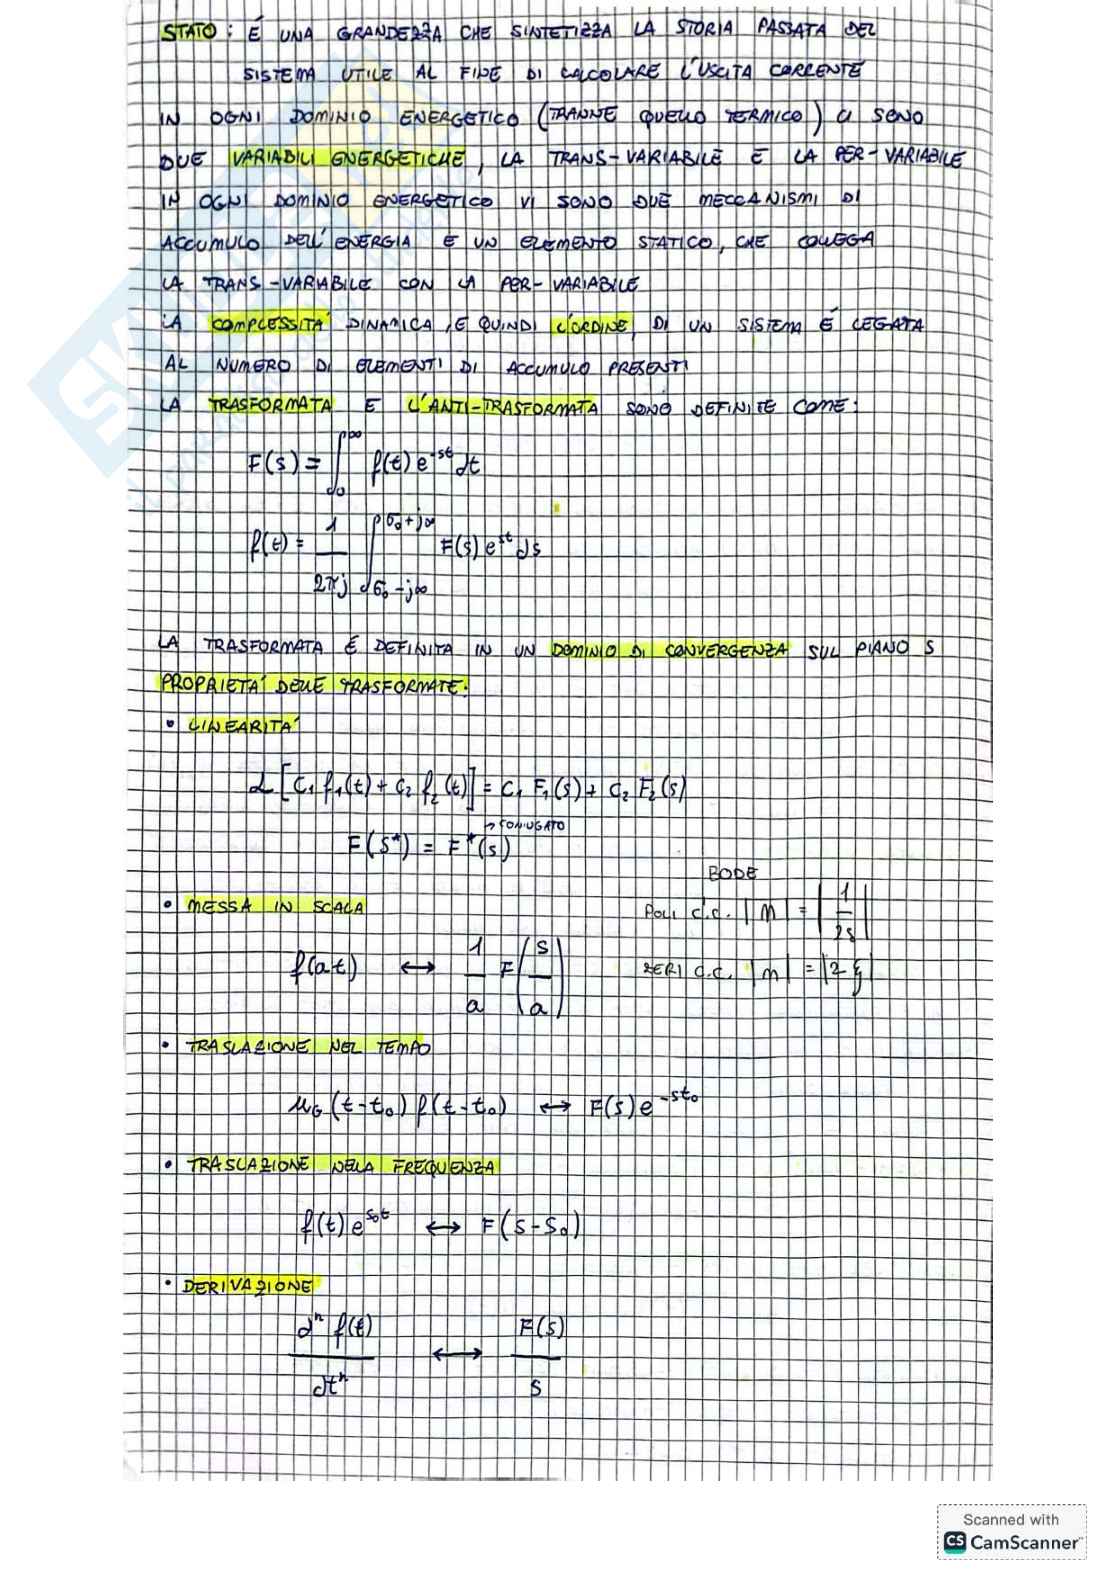 STATO: É UNA GRANDEZZA CHE SINTETIZZA LA STORIA PASSATA DEL
SISTEMA UTILE AL FINE DI CALCOLARE L'USCITA CORRENTE
IN OGNI DOMINIO ENERGETICO (TRANNE QUELLO TERMICO) CI SONO
DUE VARIABILI ENERGETICHE, LA TRANS-VARIABILE E LA PER-VARIABILE
IN OGNI DOMINIO ENERGETICO VI SONO DUE MECCANISMI DI
ACCUMULO DELL'ENERGIA E UN ELEMENTO STATICO, CHE COLLEGA
LA TRANS-VARIABILE CON LA PER-VARIABILE
LA COMPLESSITA' DINAMICA, E QUINDI L'ORDINE, DI UN SISTEMA É LEGATA
AL NUMERO DI ELEMENTI DI ACCUMULO PRESENTI
LA TRASFORMATA E L'ANTI-TRASFORMATA SONO DEFINITE COME:
F(s) = ∫₀^∞ f(t) e^-st dt
f(t) = 1/2πj ∫_{σ₀-j∞}^{σ₀+j∞} F(s) e^st ds
LA TRASFORMATA É DEFINITA IN UN DOMINIO DI CONVERGENZA SUL PIANO S
PROPRIETA' DELLE TRASFORMATE:
• LINEARITA'
L[c₁ f₁(t) + c₂ f₂(t)] = c₁ F₁(s) + c₂ F₂(s)
F(s*) = F*(s) → CONIUGATO
BODE
• MESSA IN SCALA
POLI C.C. |M| = |1/2ξ|
f(at) ↔ 1/a F(s/a)
ZERI C.C. |M| = |2ξ|
• TRASLAZIONE NEL TEMPO
μ_G(t-t₀) f(t-t₀) ↔ F(s) e^-st₀
• TRASLAZIONE NELLA FREQUENZA
f(t) e^s₀t ↔ F(s-s₀)
• DERIVAZIONE
dⁿ f(t)/dtⁿ ↔ F(s)/s
Scanned with
CS CamScanner